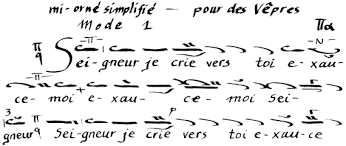 mi-orné simplifié — pour des Vêpres
Mode 1
Sei-gneur je crie vers toi e-xau-
ce-moi e-xau-ce-moi Sei-
gneur Sei-gneur je crie vers toi e-xau-ce